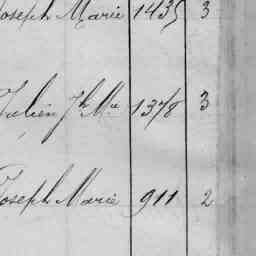 Joseph Marie 1435 3
Julien Jh Mie 1378 3
Joseph Marie 911 2